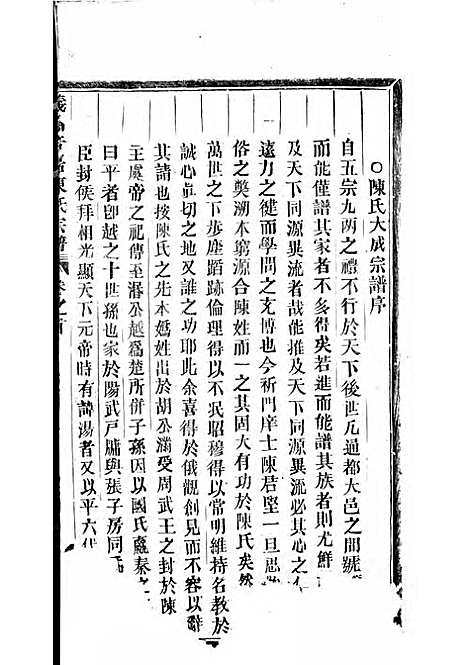 ○陳氏大成宗譜序
自五宗九兩之禮不行於天下後世凡通都大邑之間號
而能僅譜其家者不多得矣若進而能譜其族者則尤鮮
及天下同源異流者哉能推及天下同源異流必其心之
遠力之健而學問之充博也今祈門庠士陳君堅一旦
俗之獘溯本窮源合陳姓而一之其固大有功於陳氏矣然
萬世之下歩塵蹈跡倫理得以不泯昭穆得以常明維持名教於
誠心真切之地又誰之功耶此余喜得於俄觀創見而不容以辭
其譜也按陳氏之先本媯姓出於胡公滿受周武王之封於陳
主虞帝之祀傳至湣公越爲楚所併子孫因以國氏處秦之
曰平者卽越之十世孫也家於陽武戸牖與張子房同
臣封侯拜相光顯天下元帝時有諱湯者又以平六代
陳氏宗譜 卷之首